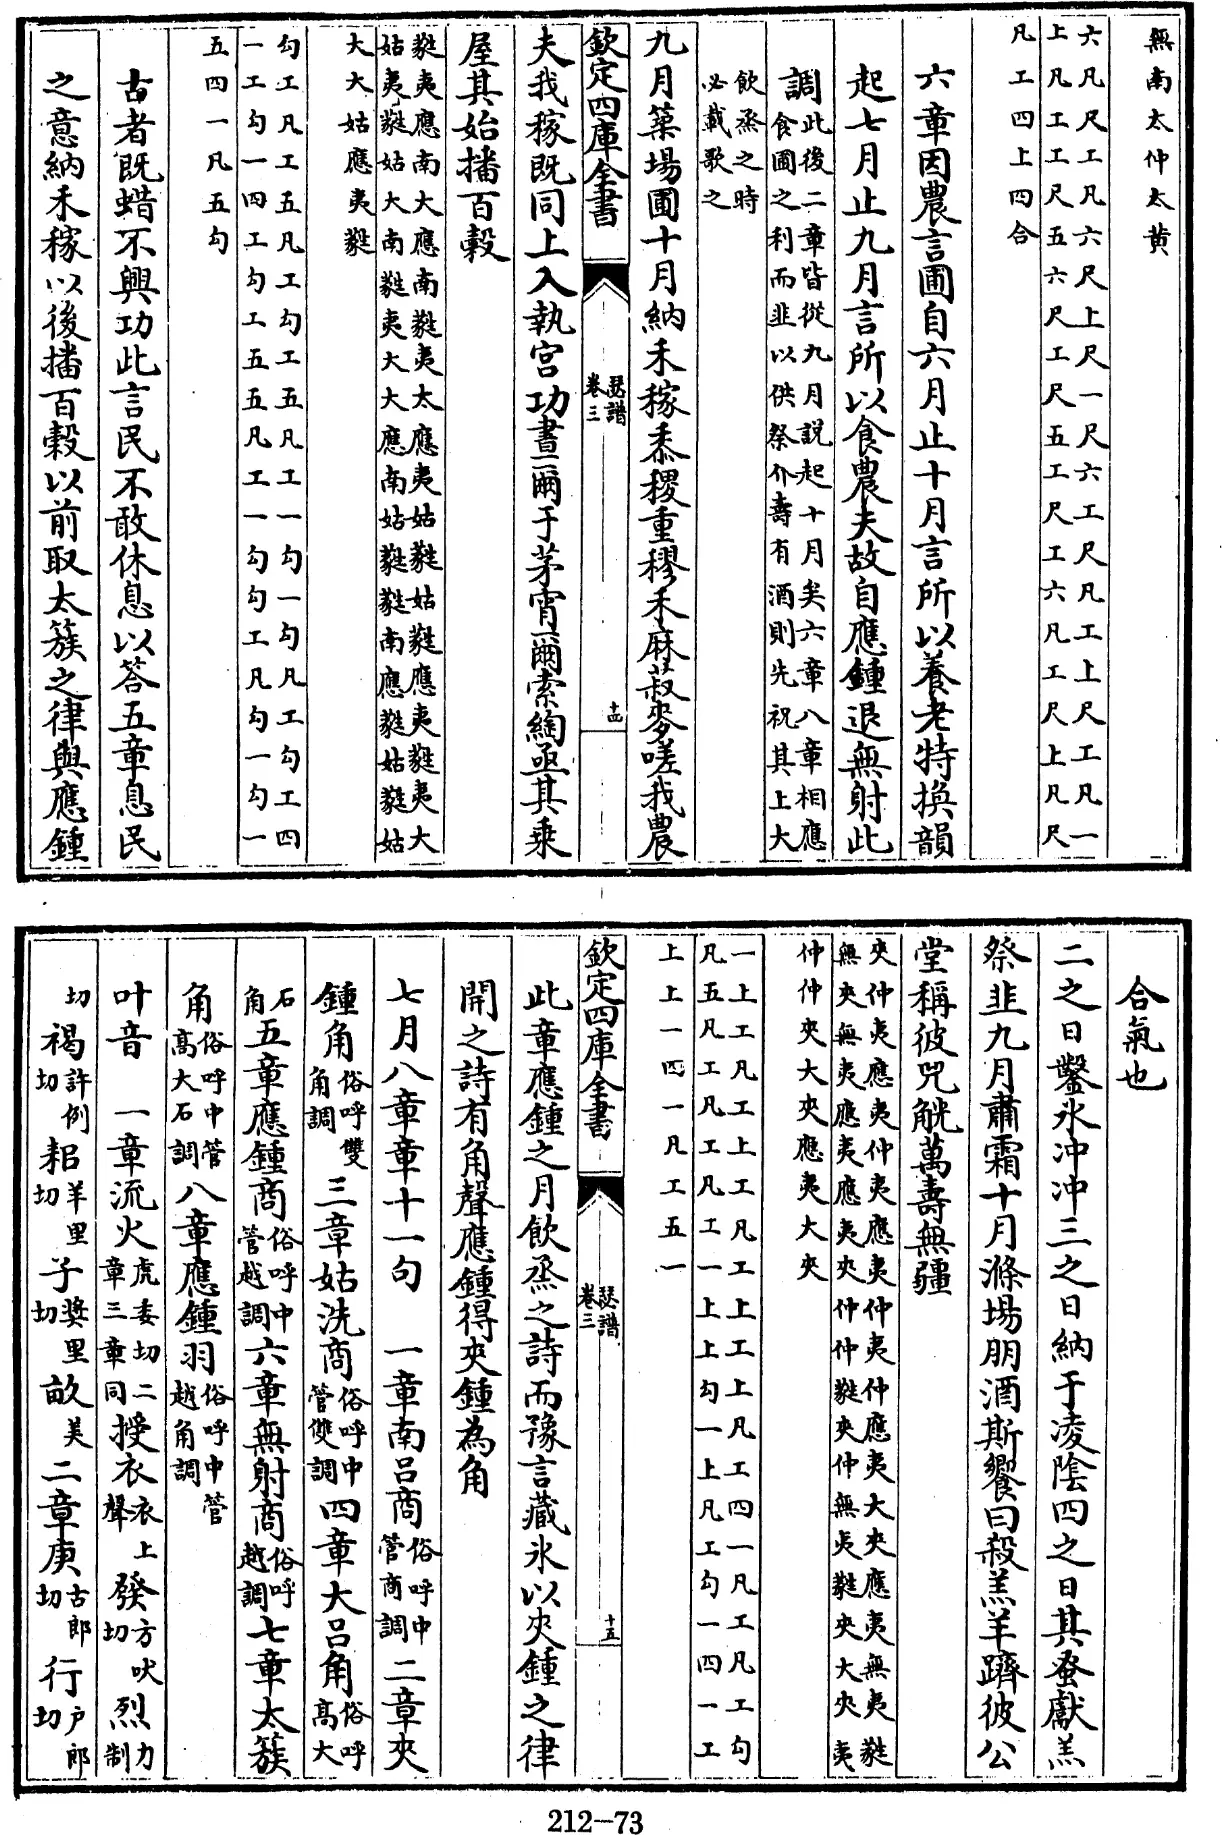 無南太仲太黄
六凡尺工凡六尺上尺一尺六工尺凡工上尺工凡一
上凡工工尺五六尺工尺五工尺工六凡工尺上凡尺
凡工四上四合
六章因農言圃自六月止十月言所以養老特換韻
起七月止九月言所以食農夫故自應鍾退無射此
調此後二章皆從九月說起十月矣六章八章相應
食圃之利而韭以供祭介壽有酒則先祝其上大
飲烝之時
必載歌之
九月築場圃十月納禾稼黍稷重穋禾麻菽麥嗟我農
欽定四庫全書
瑟譜
卷三
十四
夫我稼既同上入執宮功晝爾于茅宵爾索綯亟其乘
屋其始播百穀
蕤夷應南大應南蕤夷太應夷姑蕤姑蕤應夷蕤夷大
姑夷蕤姑大南蕤夷大大應南姑蕤蕤南應蕤姑蕤姑
大大姑應夷蕤
勾工凡工五凡工勾工五凡工一勾一勾凡工勾工四
一工勾一四工勾工五五凡工一勾勾工凡勾一勾一
五四一凡五勾
古者既蜡不興功此言民不敢休息以答五章息民
之意納禾稼以後播百穀以前取太簇之律與應鍾
合氣也
二之日鑿氷沖沖三之日納于凌陰四之日其蚤獻羔
祭韭九月肅霜十月滌場朋酒斯饗曰殺羔羊躋彼公
堂稱彼兕觥萬壽無疆
夾仲夷應夷仲夷應夷仲夷仲應夷大夾應夷無夷蕤
無夾無夷應夷應夷夾仲仲蕤夾仲無夷蕤夾大夾夷
仲仲夾大夾應夷大夾
一上工凡工上工凡工上工上凡工四一凡工凡工勾
凡五凡工凡工凡工一上上勾一上凡工勾一四一工
上上一四一凡工五一
欽定四庫全書
瑟譜
卷三
十五
此章應鍾之月飲烝之詩而豫言藏氷以夾鍾之律
開之詩有角聲應鍾得夾鍾為角
七月八章章十一句 一章南呂商俗呼中管商調二章夾
鍾角俗呼雙角調 三章姑洗商俗呼中管雙調四章大呂角俗呼高大
石角五章應鍾商俗呼中管越調六章無射商俗呼越調七章太簇
角俗呼中管高大石調八章應鍾羽俗呼中管越角調
叶音 一章流火虎委切二章三章同授衣衣上聲發方吠切烈力制
切褐許例切耜羊里切子奨里切畝美二章庚古郎切行戶郎切
212-73